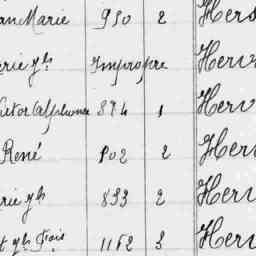 an Marie 950 2 Hers
rie yh Impropre Herv
ictor Alphonse 874 1 Herv
René 802 2 Herv
rie yh 833 2 Herv
t yh Fois 1162 3 Herv